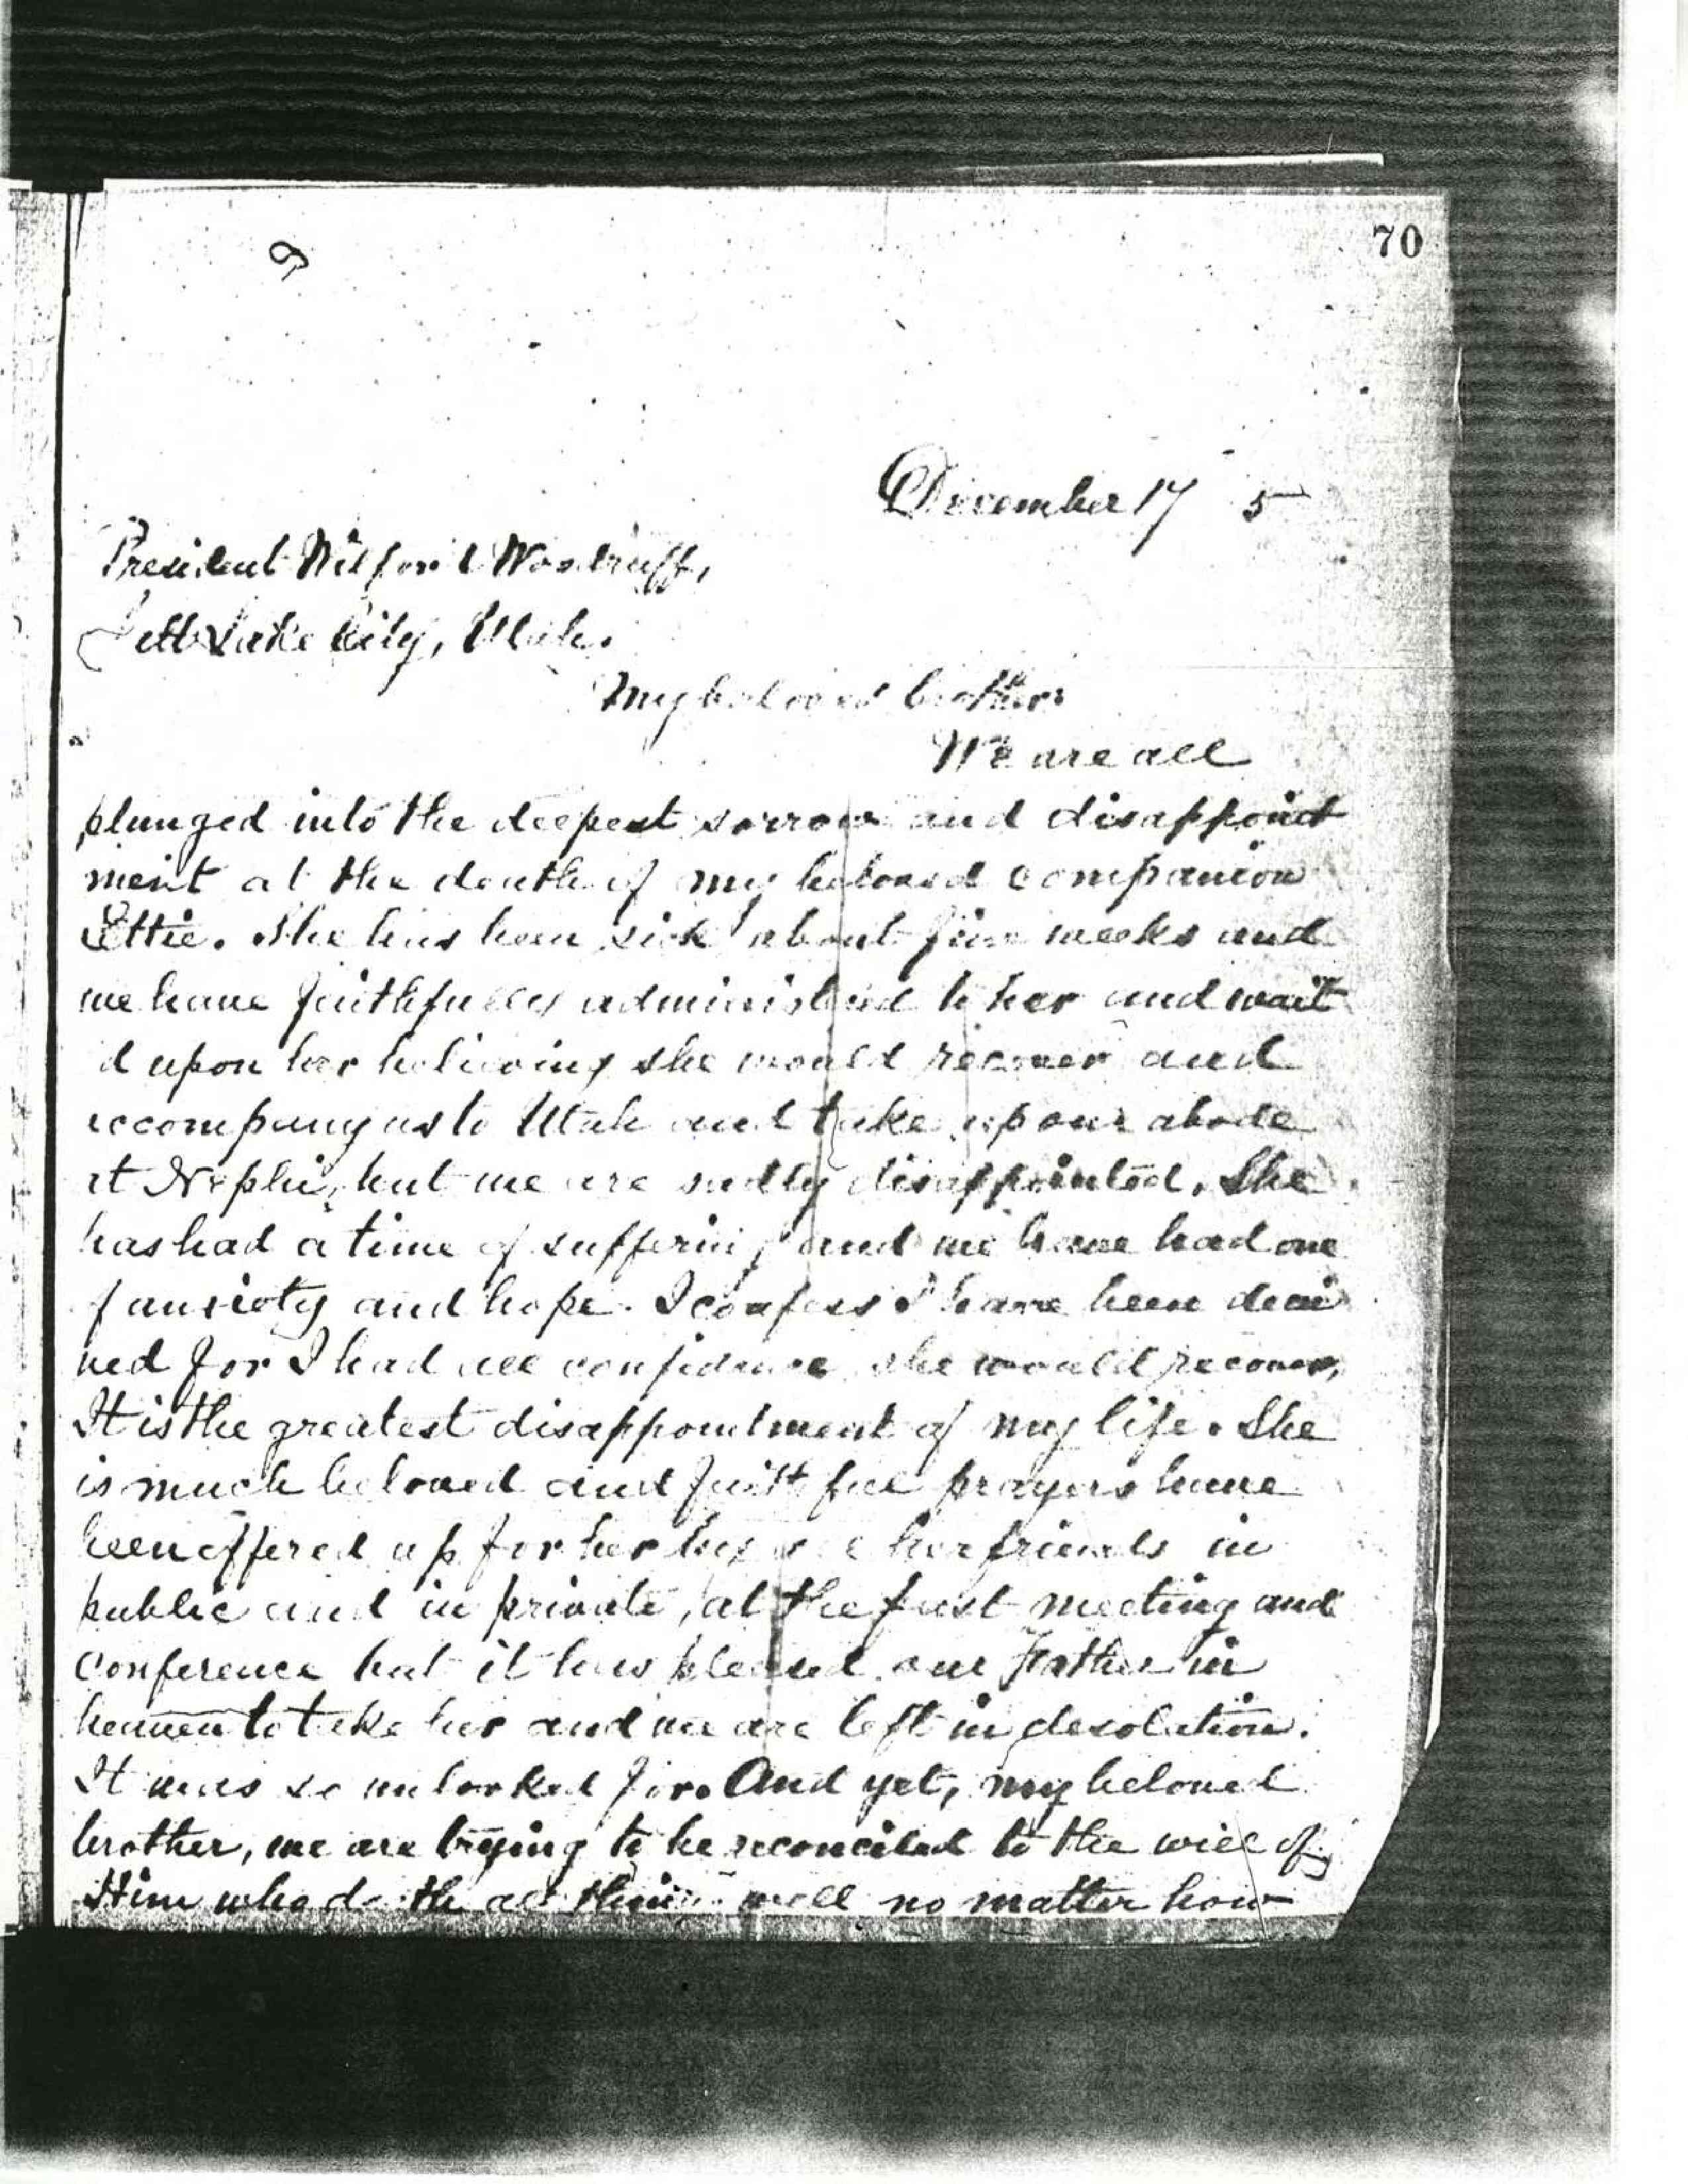 70
December 17 5
President Wilford Woodruff,
Salt Lake City, Utah.
My beloved brother
We are all
plunged into the deepest sorrow and disappoint
ment at the death of my beloved companion
Ettie. She has been sick about five weeks and
we have faithfully administered to her and wait
d upon her believing she would recover and
accompany us to Utah and take up our abode
at Nephi, but we are sadly disappointed. She
has had a time of suffering and we have had one
of anxiety and hope. I confess I have been decei
ved for I had all confidence she would recover,
It is the greatest disappointment of my life. She
is much beloved and faithful prayers have
been offered up for her by all her friends in
public and in private, at the fast meeting and
conference but it has pleased our Father in
heaven to take her and we are left in desolation.
It was so unlooked for. And yet, my beloved
brother, we are trying to be reconciled to the will of
Him who doeth all things well no matter how